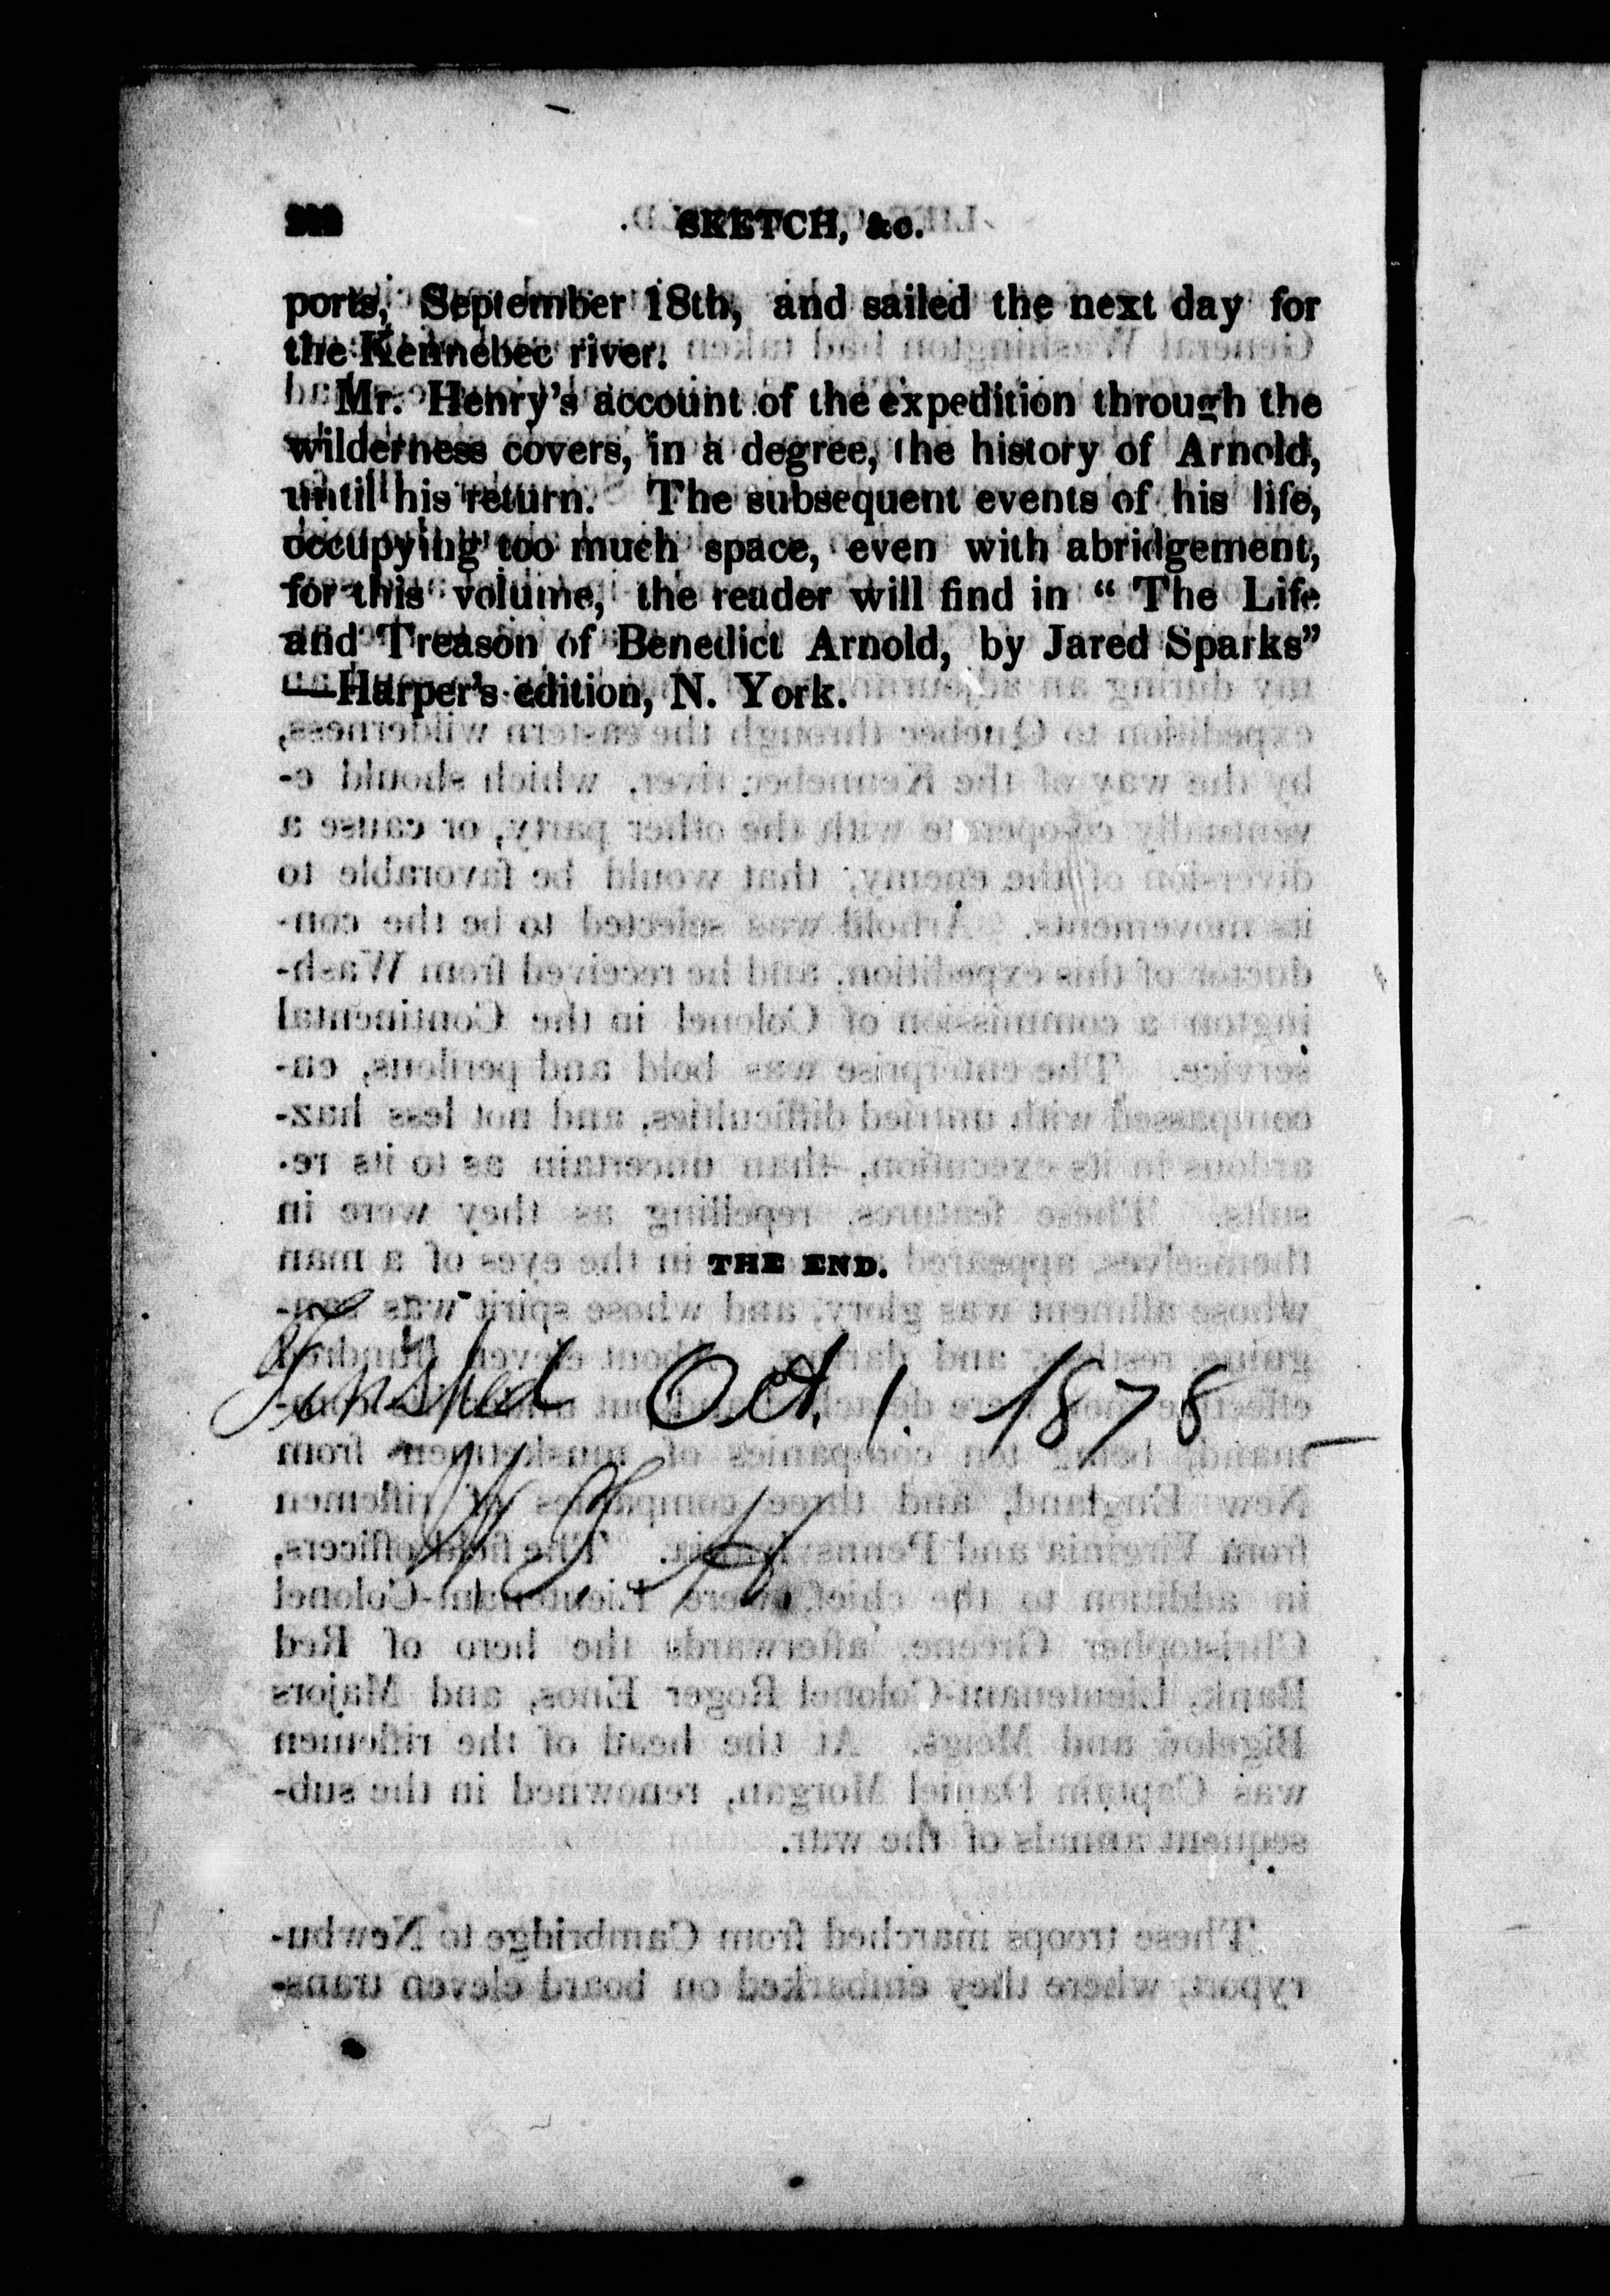 SKETCH, &c.
ports, September 18th, and sailed the next day for
the Kennebec river.
Mr. Henry's account of the expedition through the
wilderness covers, in a degree, the history of Arnold,
until his return. The subsequent events of his life,
occupying too much space, even with abridgement,
for this volume, the reader will find in “ The Life
and Treason of Benedict Arnold, by Jared Sparks”
—Harper's edition, N. York.
THE END.
Finished Oct. 1. 1878